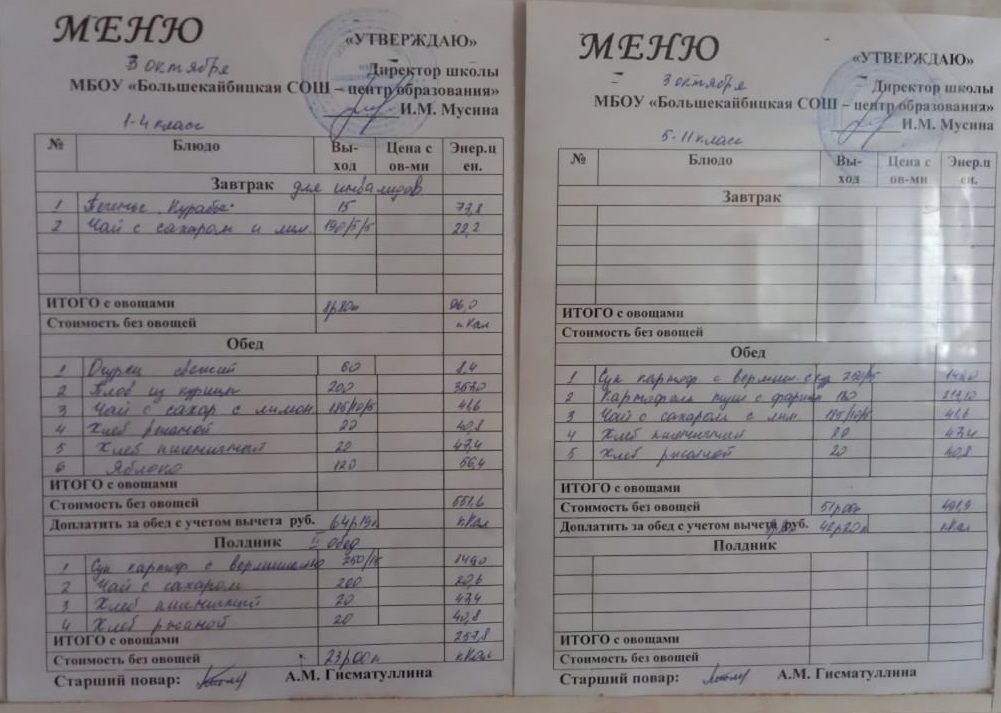 МЕНЮ
«УТВЕРЖДАЮ»
3 октября
Директор школы
МБОУ «Большекайбицкая СОШ – центр образования»
И.М. Мусина
1-4 класс
№ Блюдо Вы-ход Цена с ов-ми Энер.ц ен.
Завтрак для инвалидов
1 Печенье Курабье 15 73,8
2 Чай с сахаром и лим. 190/5/5 22,2
ИТОГО с овощами 8р80к 96,0
Стоимость без овощей кКал
Обед
1 Огурец свежий 60 8,4
2 Плов из курицы 200
3 Чай с сахар с лимон. 41,6
4 Хлеб ржаной 20 40,8
5 Хлеб пшеничный 20 47,4
6 Яблоко 120 56,4
ИТОГО с овощами
Стоимость без овощей 551,6
Доплатить за обед с учетом вычета руб. 64р19к кКал
Полдник II обед
1 Суп картоф с вермишелью
2 Чай с сахаром 200 20,6
3 Хлеб пшеничный 20 47,4
4 Хлеб ржаной 20 40,8
ИТОГО с овощами 257,8
Стоимость без овощей 23р00к кКал
Старший повар: А.М. Гисматуллина
МЕНЮ
«УТВЕРЖДАЮ»
3 октября
Директор школы
МБОУ «Большекайбицкая СОШ – центр образования»
И.М. Мусина
5-11 класс
№ Блюдо Вы-ход Цена с ов-ми Энер.ц ен.
Завтрак
ИТОГО с овощами
Стоимость без овощей
Обед
1 Суп картоф с вермиш
2 Картофель туш с фаршем
3 Чай с сахаром с лим 41,6
4 Хлеб пшеничный 20 47,4
5 Хлеб ржаной 20 40,8
ИТОГО с овощами
Стоимость без овощей 51р00к 491,9
Доплатить за обед с учетом вычета руб. 42р20к кКал
Полдник
ИТОГО с овощами
Стоимость без овощей
Старший повар: А.М. Гисматуллина